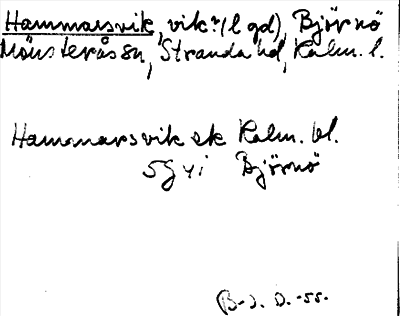 Hammarsvik, vik? (l gd), Björnö
Mönsterås sn, Stranda hd, Kalm. l.
Hammarsvik ek Kalm. bl.
5G4i Björnö
B-J. D. -55.